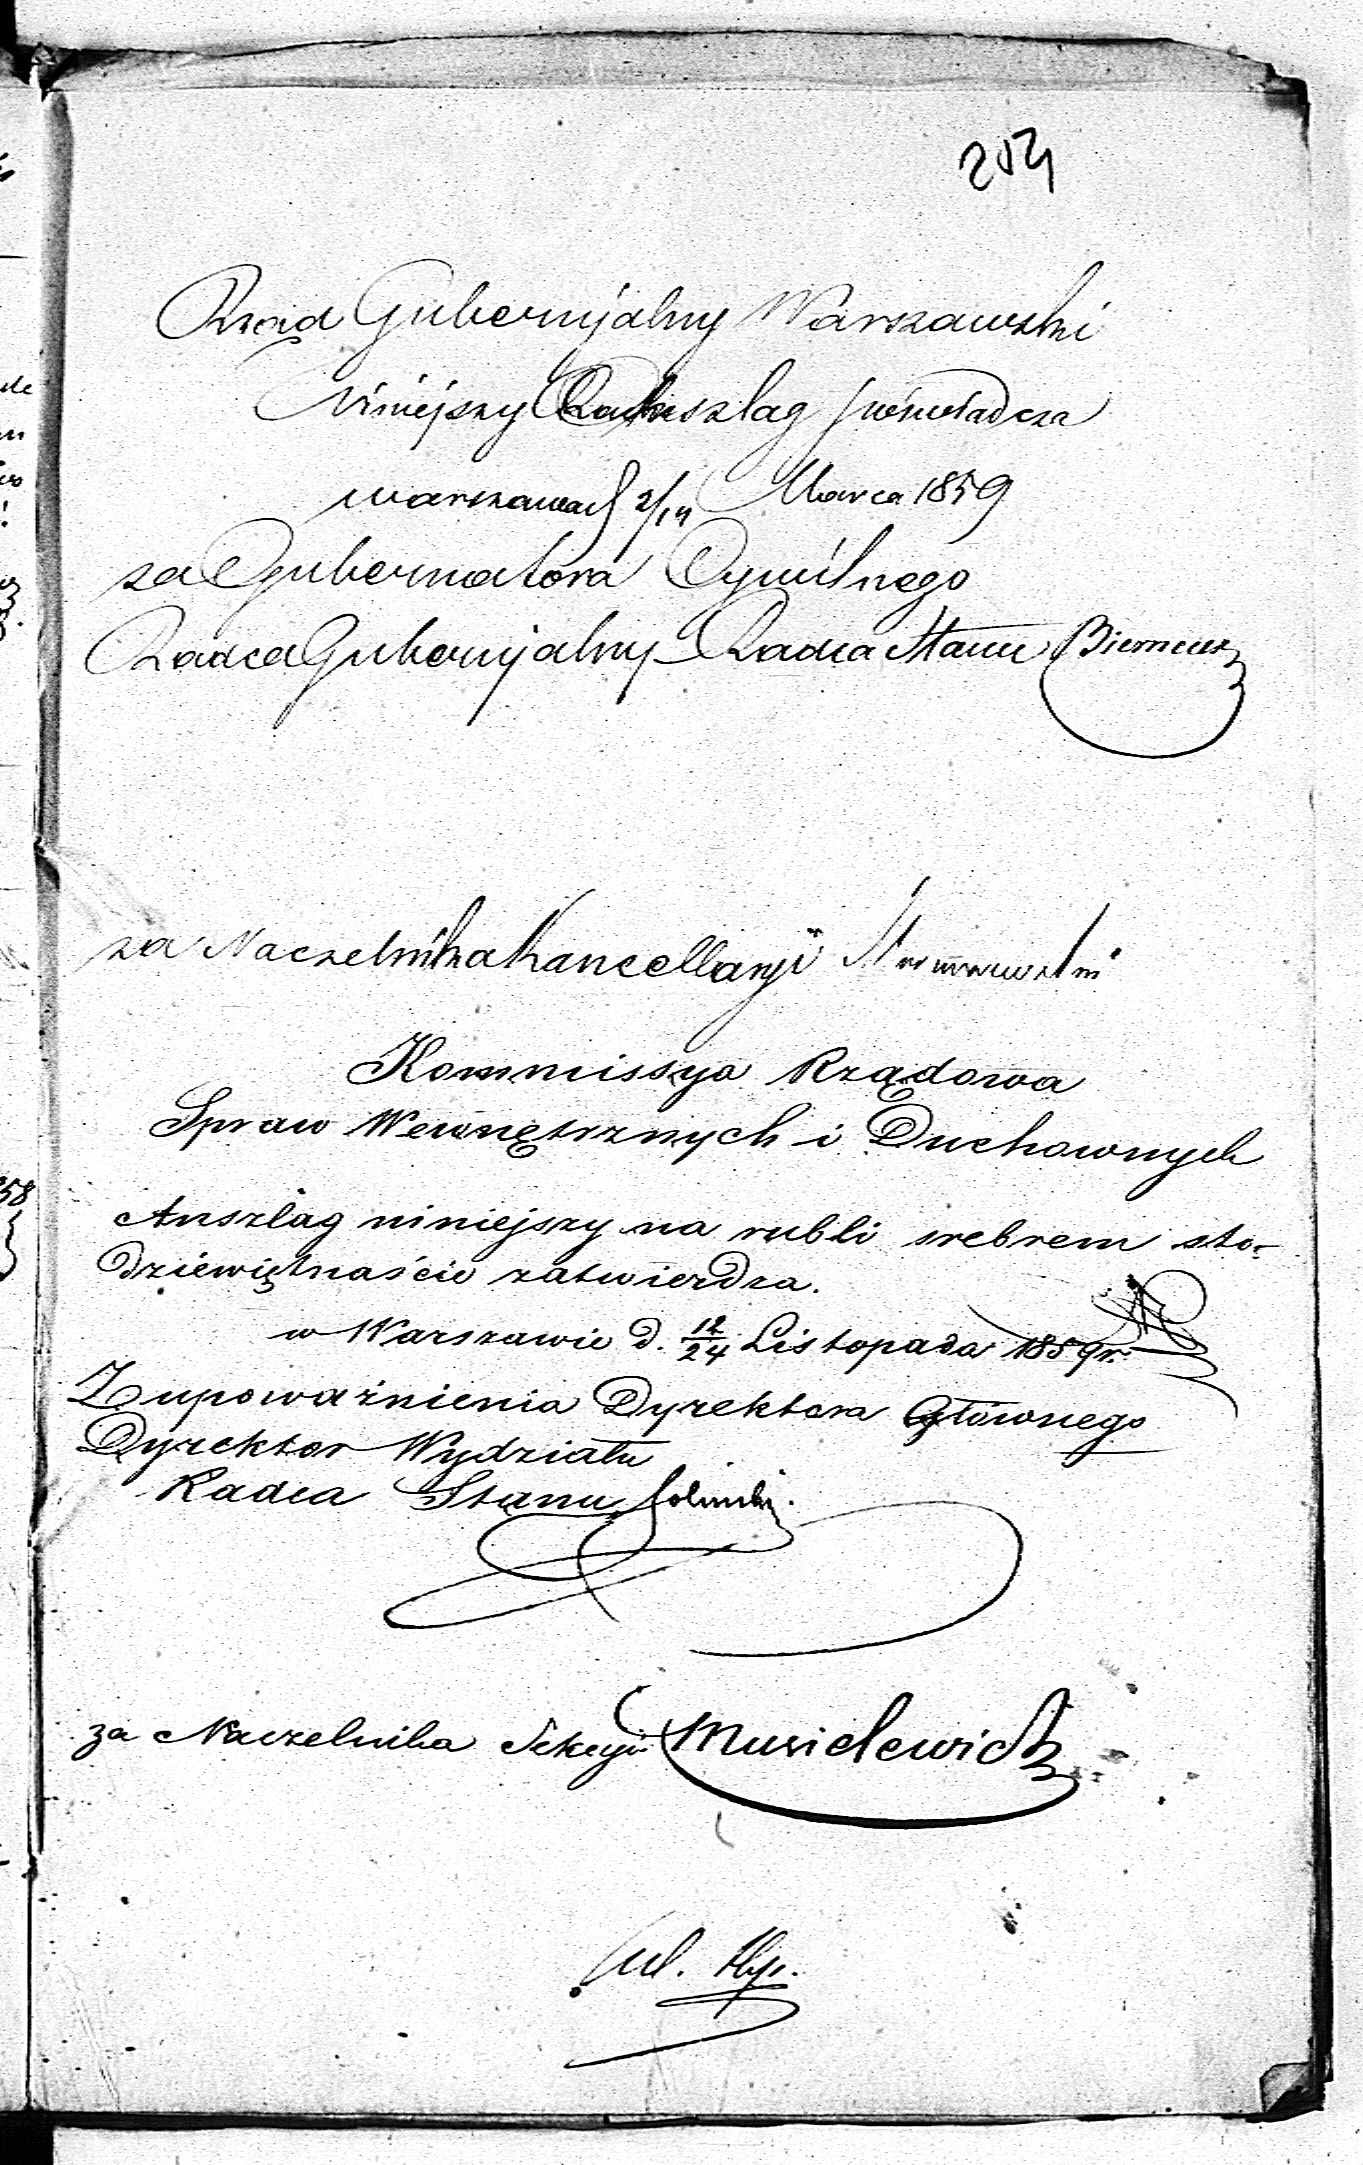 204
Rząd Gubernijalny Warszawski
Niniejszy Anszlag poświadcza
Warszawa d 2/14 Marca 1859
za Gubernatora Cywilnego
Radca Gubernijalny Radca Stanu
za Naczelnika Kancellaryi
Kommissya Rządowa
Spraw Wewnętrznych i Duchownych
Anszlag niniejszy na rubli srebrem sto-
dziewiętnaście zatwierdza.
w Warszawie d. 12/24 Listopada 1859 r.
Z upoważnienia Dyrektora Głównego
Dyrektor Wydziału
Radca Stanu
za Naczelnika Sekcyi Musielewicz